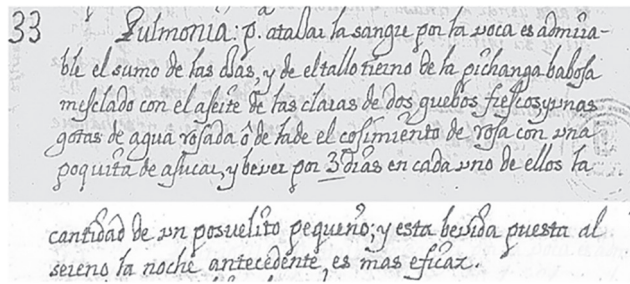 33 Pulmonia: p.ª atallar la sangre por la voca es admira-
ble el sumo de las ojas, y de el tallo tierno de la pichanga babosa
mesclado con el aseite de las claras de dos guebos frescos, y unas
gotas de agua rosada ô de la de el cosimiento de rosa con una
poquita de asucar, y bever por 3 dias en cada uno de ellos la
cantidad de un posuelito pequeño; y esta bevida puesta al
sereno la noche antecedente, es mas eficax.